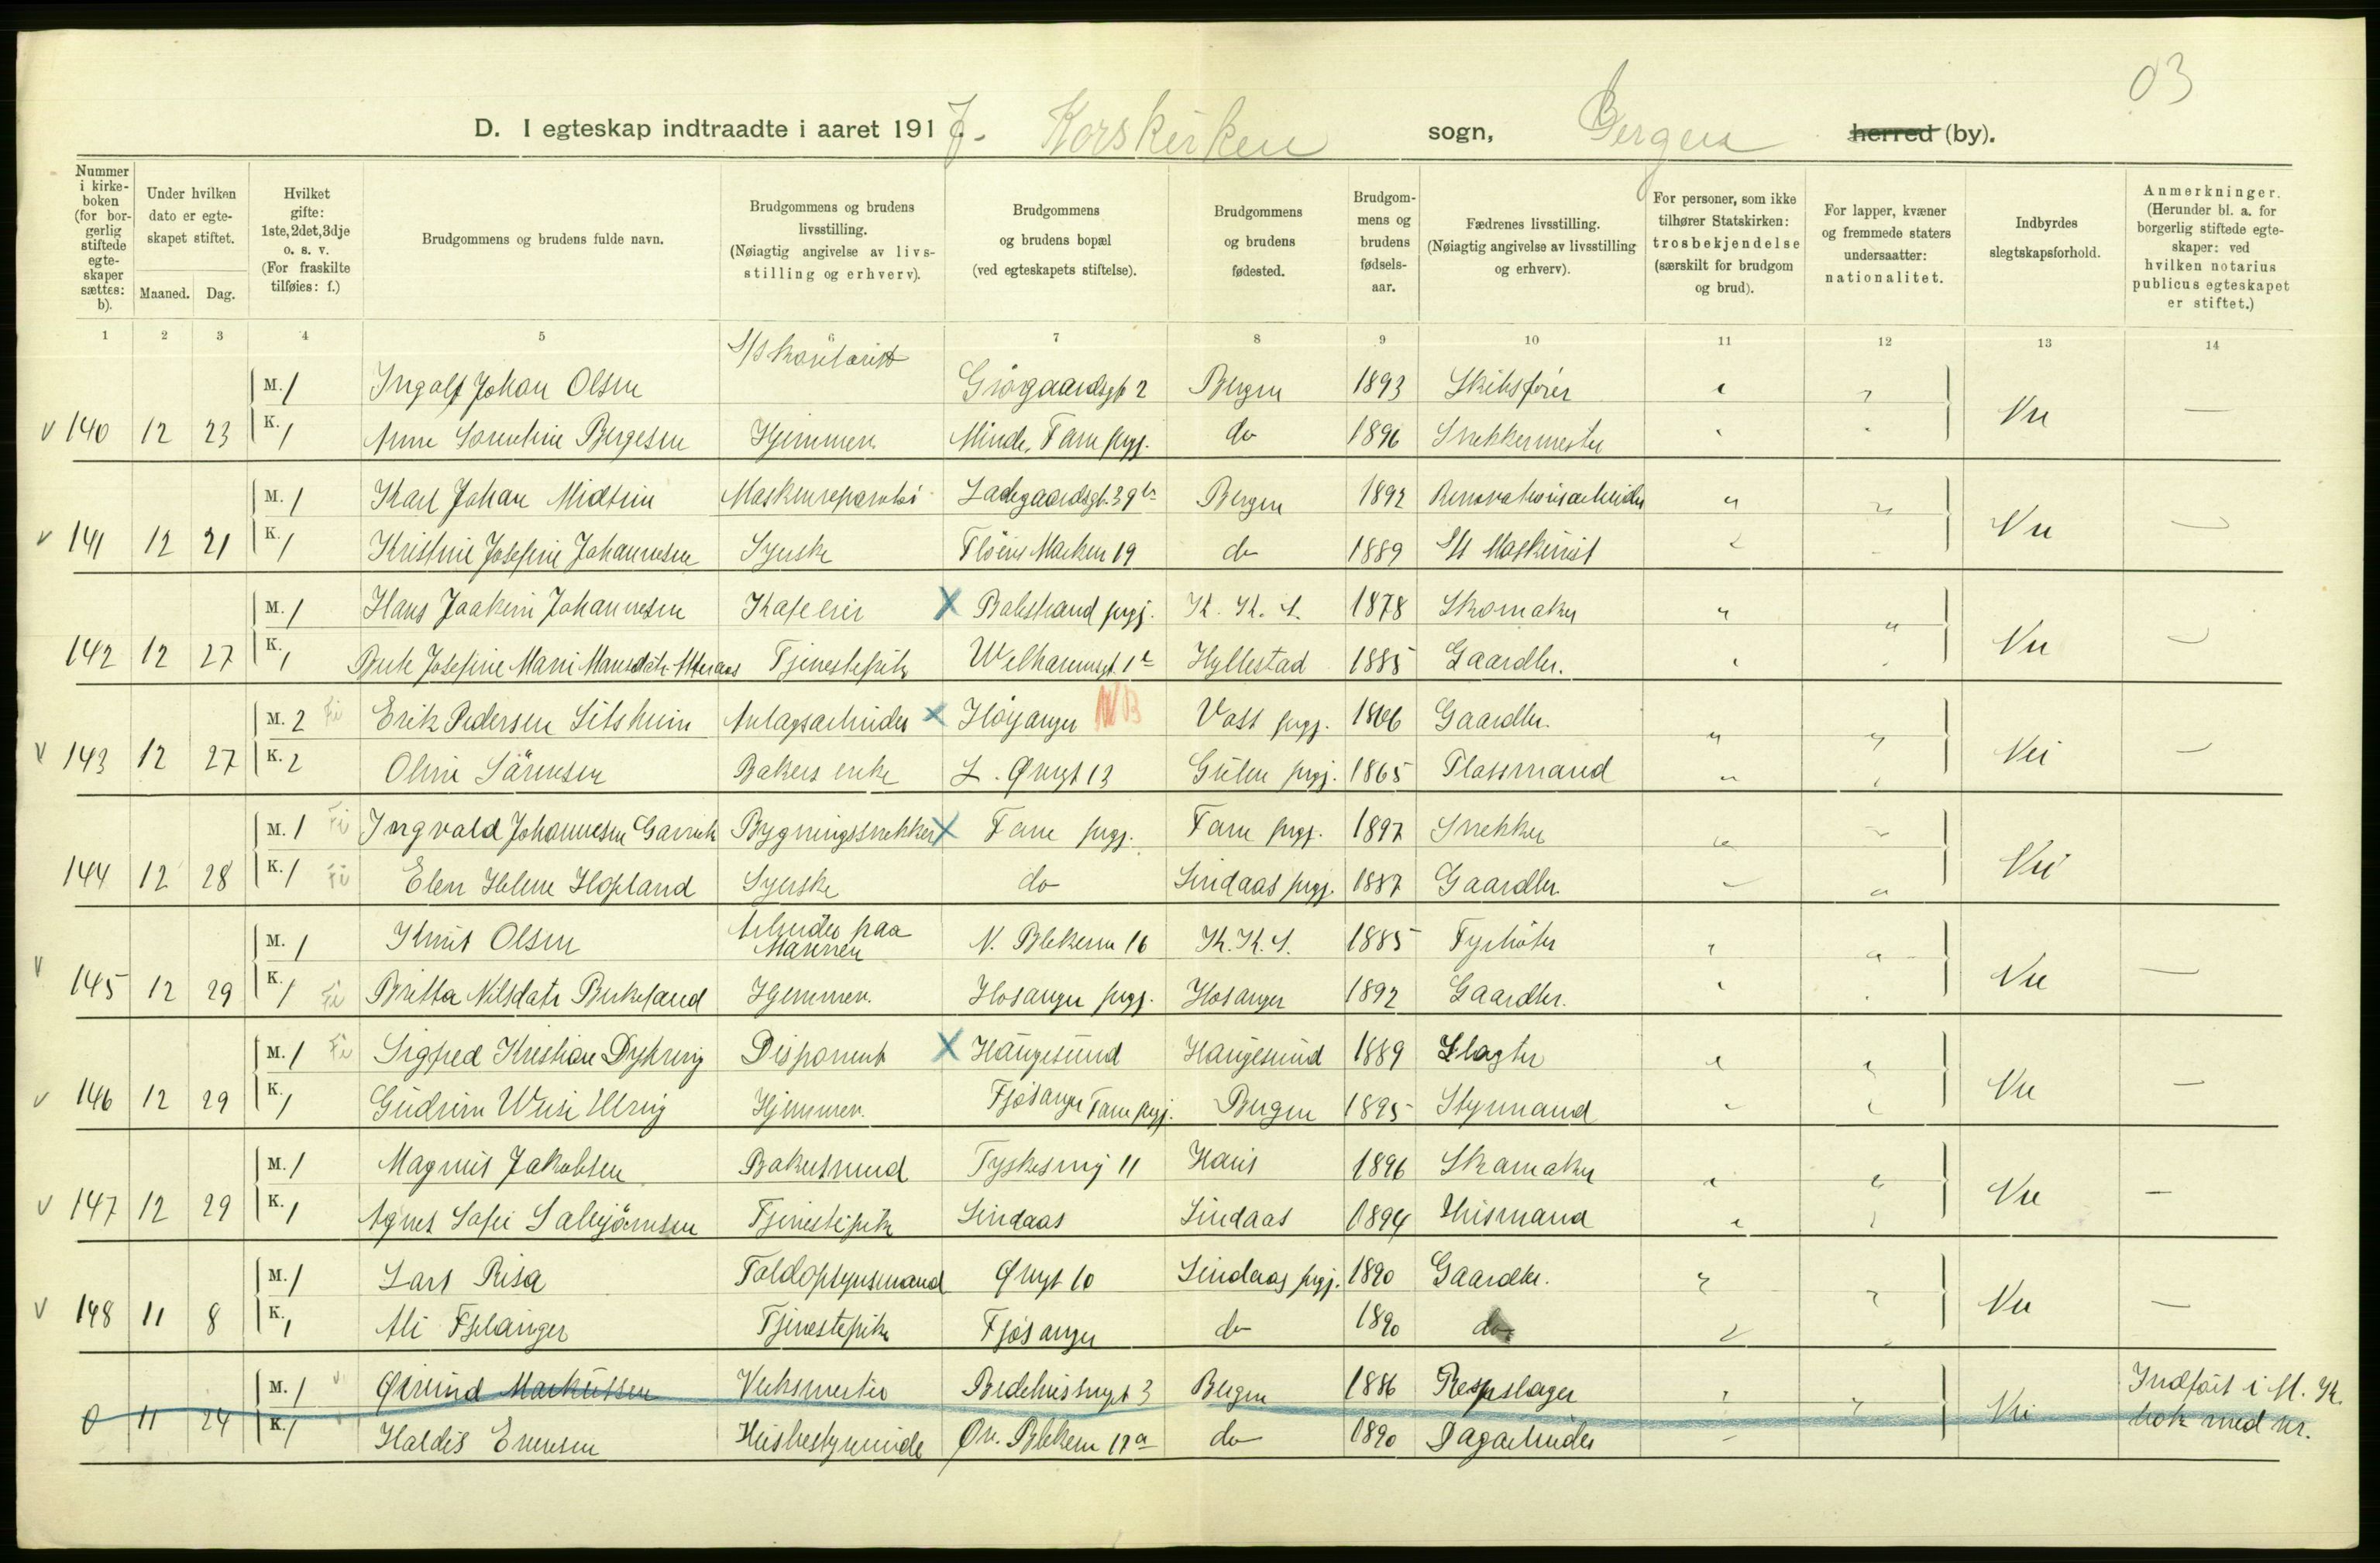 03
D. I egteskap indtraadte i aaret 1917. Korskirken sogn, Bergen herred (by).
Nummer i kirkeboken (for borgerlig stiftede egteskaper sættes: b).
Under hvilken dato er egteskapet stiftet.
Maaned. Dag.
Hvilket gifte: 1ste, 2det, 3dje o. s. v. (For fraskilte tilføies: f.)
Brudgommens og brudens fulde navn.
Brudgommens og brudens livsstilling. (Nøiagtig angivelse av livsstilling og erhverv).
Brudgommens og brudens bopæl (ved egteskapets stiftelse).
Brudgommens og brudens fødested.
Brudgommens og brudens fødselsaar.
Fædrenes livsstilling. (Nøiagtig angivelse av livsstilling og erhverv).
For personer, som ikke tilhører Statskirken: trosbekjendelse (særskilt for brudgom og brud).
For lapper, kvæner og fremmede staters undersaatter: nationalitet.
Indbyrdes slegtskapsforhold.
Anmerkninger. (Herunder bl. a. for borgerlig stiftede egteskaper: ved hvilken notarius publicus egteskapet er stiftet.)
1 2 3 4 5 6 7 8 9 10 11 12 13 14
M. 1 Ingolf Johan Olsen Bergen 1893 Skibsfører " "
140 12 23 K. 1 Bergesen Hjemmev. Minde, Fane prgj. do 1896 Snekkermester " " Nei —
M. 1 Karl Johan Midttun Maskinreparatør Ladegaardsgt. 39 Bergen 1892 Renovationsarbeider " "
141 12 21 K. 1 Kristine Josefine Johannesen Syerske Fløens Marken 19 do 1889 S/S Maskinist " " Nei —
M. 1 Hans Joakim Johannesen X Balestrand prgj. K. K. S. 1878 Skomaker " "
142 12 27 K. 1 Josefine Tjenestepike Welhavensgt. 1 Hyllestad 1885 Gaardbr. " " Nei —
M. 2 Fi Erik Pedersen Anlagsarbeider X Høyanger NB Voss prgj. 1866 Gaardbr. " "
143 12 27 K. 2 Oline Sörensen Bakers enke L. Øvregt 13 Gulen prgj. 1865 Plassmand " " Nei —
M. 1 Fi Ingvald Johannesen Bygningssnekker X Fane prgj. Fane prgj. 1897 Snekker " "
144 12 28 K. 1 Fi Elen Helene Hopland Syerske do Lindaas prgj. 1887 Gaardbr. " " Nei
M. 1 Knut Olsen Arbeider paa Marinen N. Blekevn 16 K. K. S. 1885 Fyrbøter " "
145 12 29 K. 1 Fi Britta Nilsdatr Birkeland Hjemmev. Hosanger prgj. Hosanger 1892 Gaardbr. " " Nei —
M. 1 Fi Sigfred Kristian Disponent X Haugesund Haugesund 1889 Slagter " "
146 12 29 K. 1 Gudrun Hjemmev. Fjøsanger Fane prgj. Bergen 1895 Styrmand " " Nei —
M. 1 Magnus Jakobsen Bakersvend Tyskesmg 11 Haus 1896 Skomaker " "
147 12 29 K. 1 Agnes Sofie Salbjörnsen Tjenestepike Lindaas Lindaas 1894 Husmand " " Nei —
M. 1 Lars Risa Toldopsynsmand Øvregt 10 Lindaas prgj. 1890 Gaardbr. " "
148 11 8 K. 1 Ali Fjelanger Tjenestepike Fjøsanger do 1890 do " " Nei —
M. 1 Øivind Markussen Verksmester 3 Bergen 1886 Repslager " " Indført i M. K.
0 11 24 K. 1 Haldis Evensen Husbestyrerinde Øv. Blekevn 17a do 1890 Dagarbeider " Nei bok med nr.